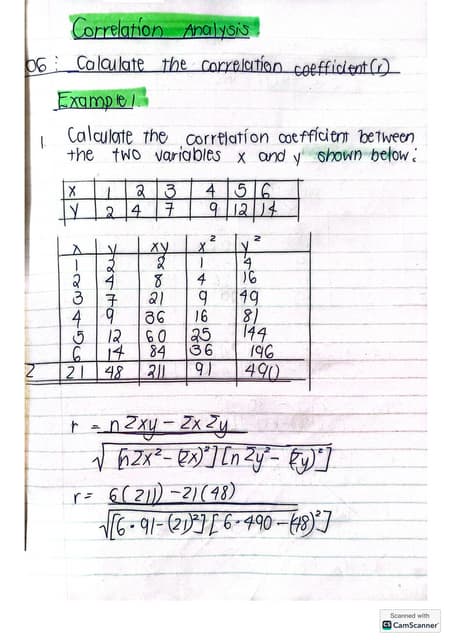 Correlation Analysis
06: Calculate the correlation coefficient (r)
Example 1.
1. Calculate the correlation coefficient between
the two variables x and y shown below:
X 1 2 3 4 5 6
Y 2 4 7 9 12 14
x y xy x² y²
1 2 2 1 4
2 4 8 4 16
3 7 21 9 49
4 9 36 16 81
5 12 60 25 144
6 14 84 36 196
Σ 21 48 211 91 490
r = nΣxy - Σx Σy
√[nΣx² - (Σx)²] [nΣy² - (Σy)²]
r = 6(211) - 21(48)
√[6·91-(21)²] [6·490-(48)²]
Scanned with
CS CamScanner